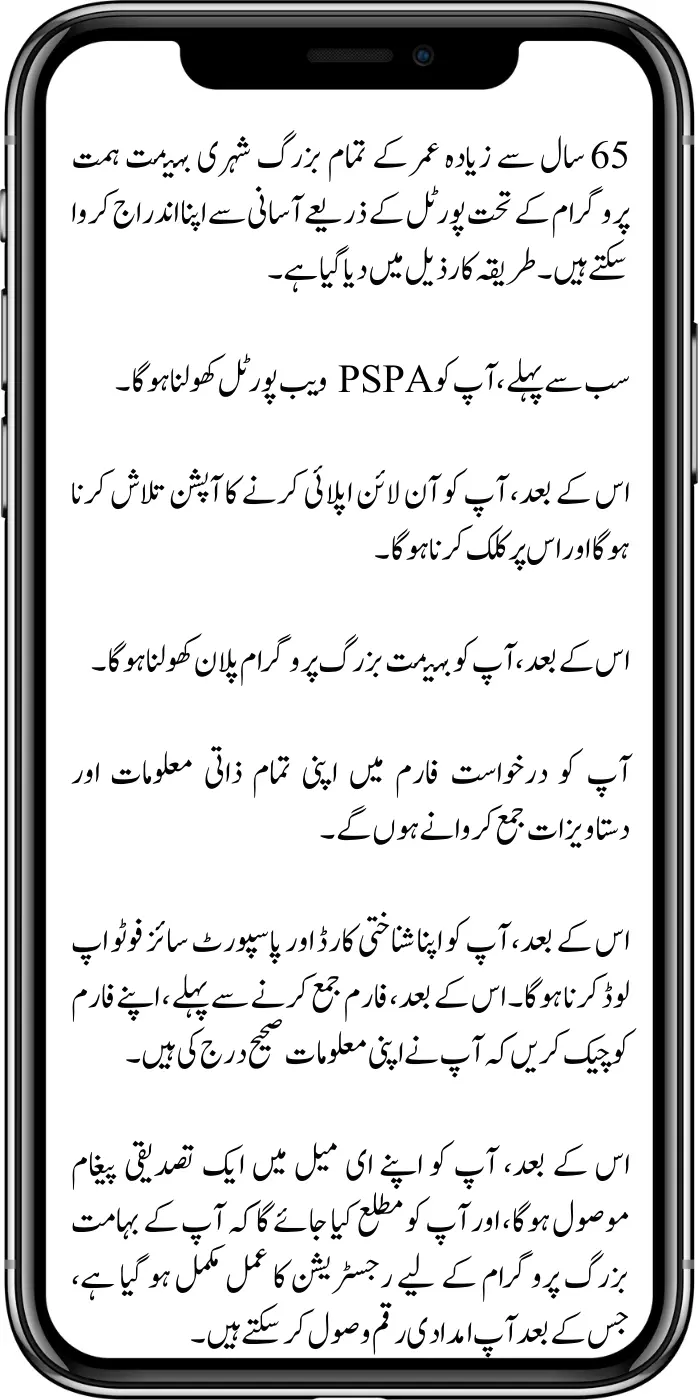 65 سال سے زیادہ عمر کے تمام بزرگ شہری بہیمت ہمت
پروگرام کے تحت پورٹل کے ذریعے آسانی سے اپنا اندراج کروا
سکتے ہیں۔ طریقہ کار ذیل میں دیا گیا ہے۔
سب سے پہلے، آپ کو PSPA ویب پورٹل کھولنا ہوگا۔
اس کے بعد، آپ کو آن لائن اپلائی کرنے کا آپشن تلاش کرنا
ہوگا اور اس پر کلک کرنا ہوگا۔
اس کے بعد، آپ کو بہیمت بزرگ پروگرام پلان کھولنا ہوگا۔
آپ کو درخواست فارم میں اپنی تمام ذاتی معلومات اور
دستاویزات جمع کروانے ہوں گے۔
اس کے بعد، آپ کو اپنا شناختی کارڈ اور پاسپورٹ سائز فوٹو اپ
لوڈ کرنا ہوگا۔ اس کے بعد، فارم جمع کرنے سے پہلے، اپنے فارم
کو چیک کریں کہ آپ نے اپنی معلومات صحیح درج کی ہیں۔
اس کے بعد، آپ کو اپنے ای میل میں ایک تصدیقی پیغام
موصول ہوگا، اور آپ کو مطلع کیا جائے گا کہ آپ کے بہامت
بزرگ پروگرام کے لیے رجسٹریشن کا عمل مکمل ہو گیا ہے،
جس کے بعد آپ امدادی رقم وصول کر سکتے ہیں۔